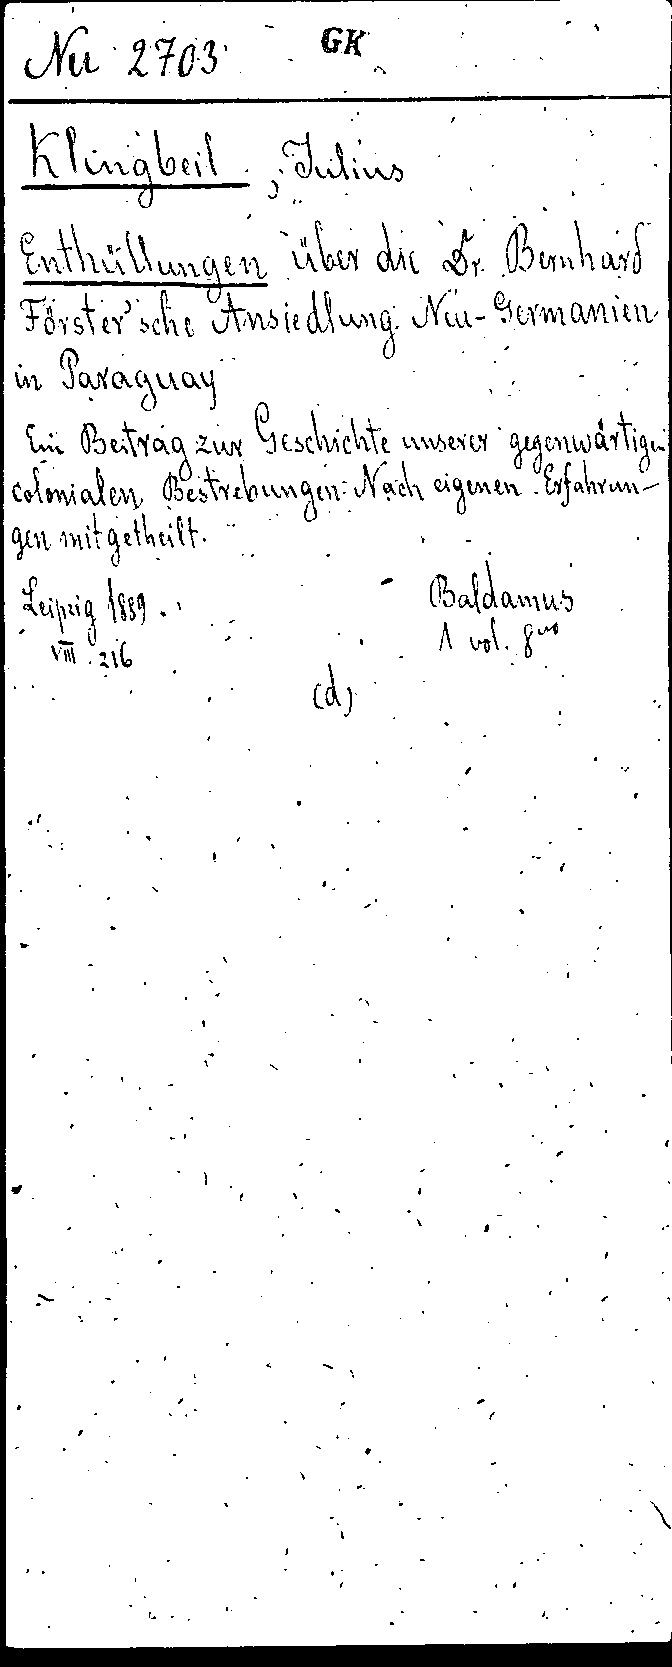 Nu 2703 GK
Klingbeil, Julius
Enthüllungen über die Dr. Bernhard
Förster'sche Ansiedlung Neu-Germanien
in Paraguay
Ein Beitrag zur Geschichte unserer gegenwärtigen
colonialen Bestrebungen. Nach eigenen Erfahrun-
gen mitgetheilt.
Leipzig 1889. Baldamus
VIII. 216 1 vol. 8vo
(d)